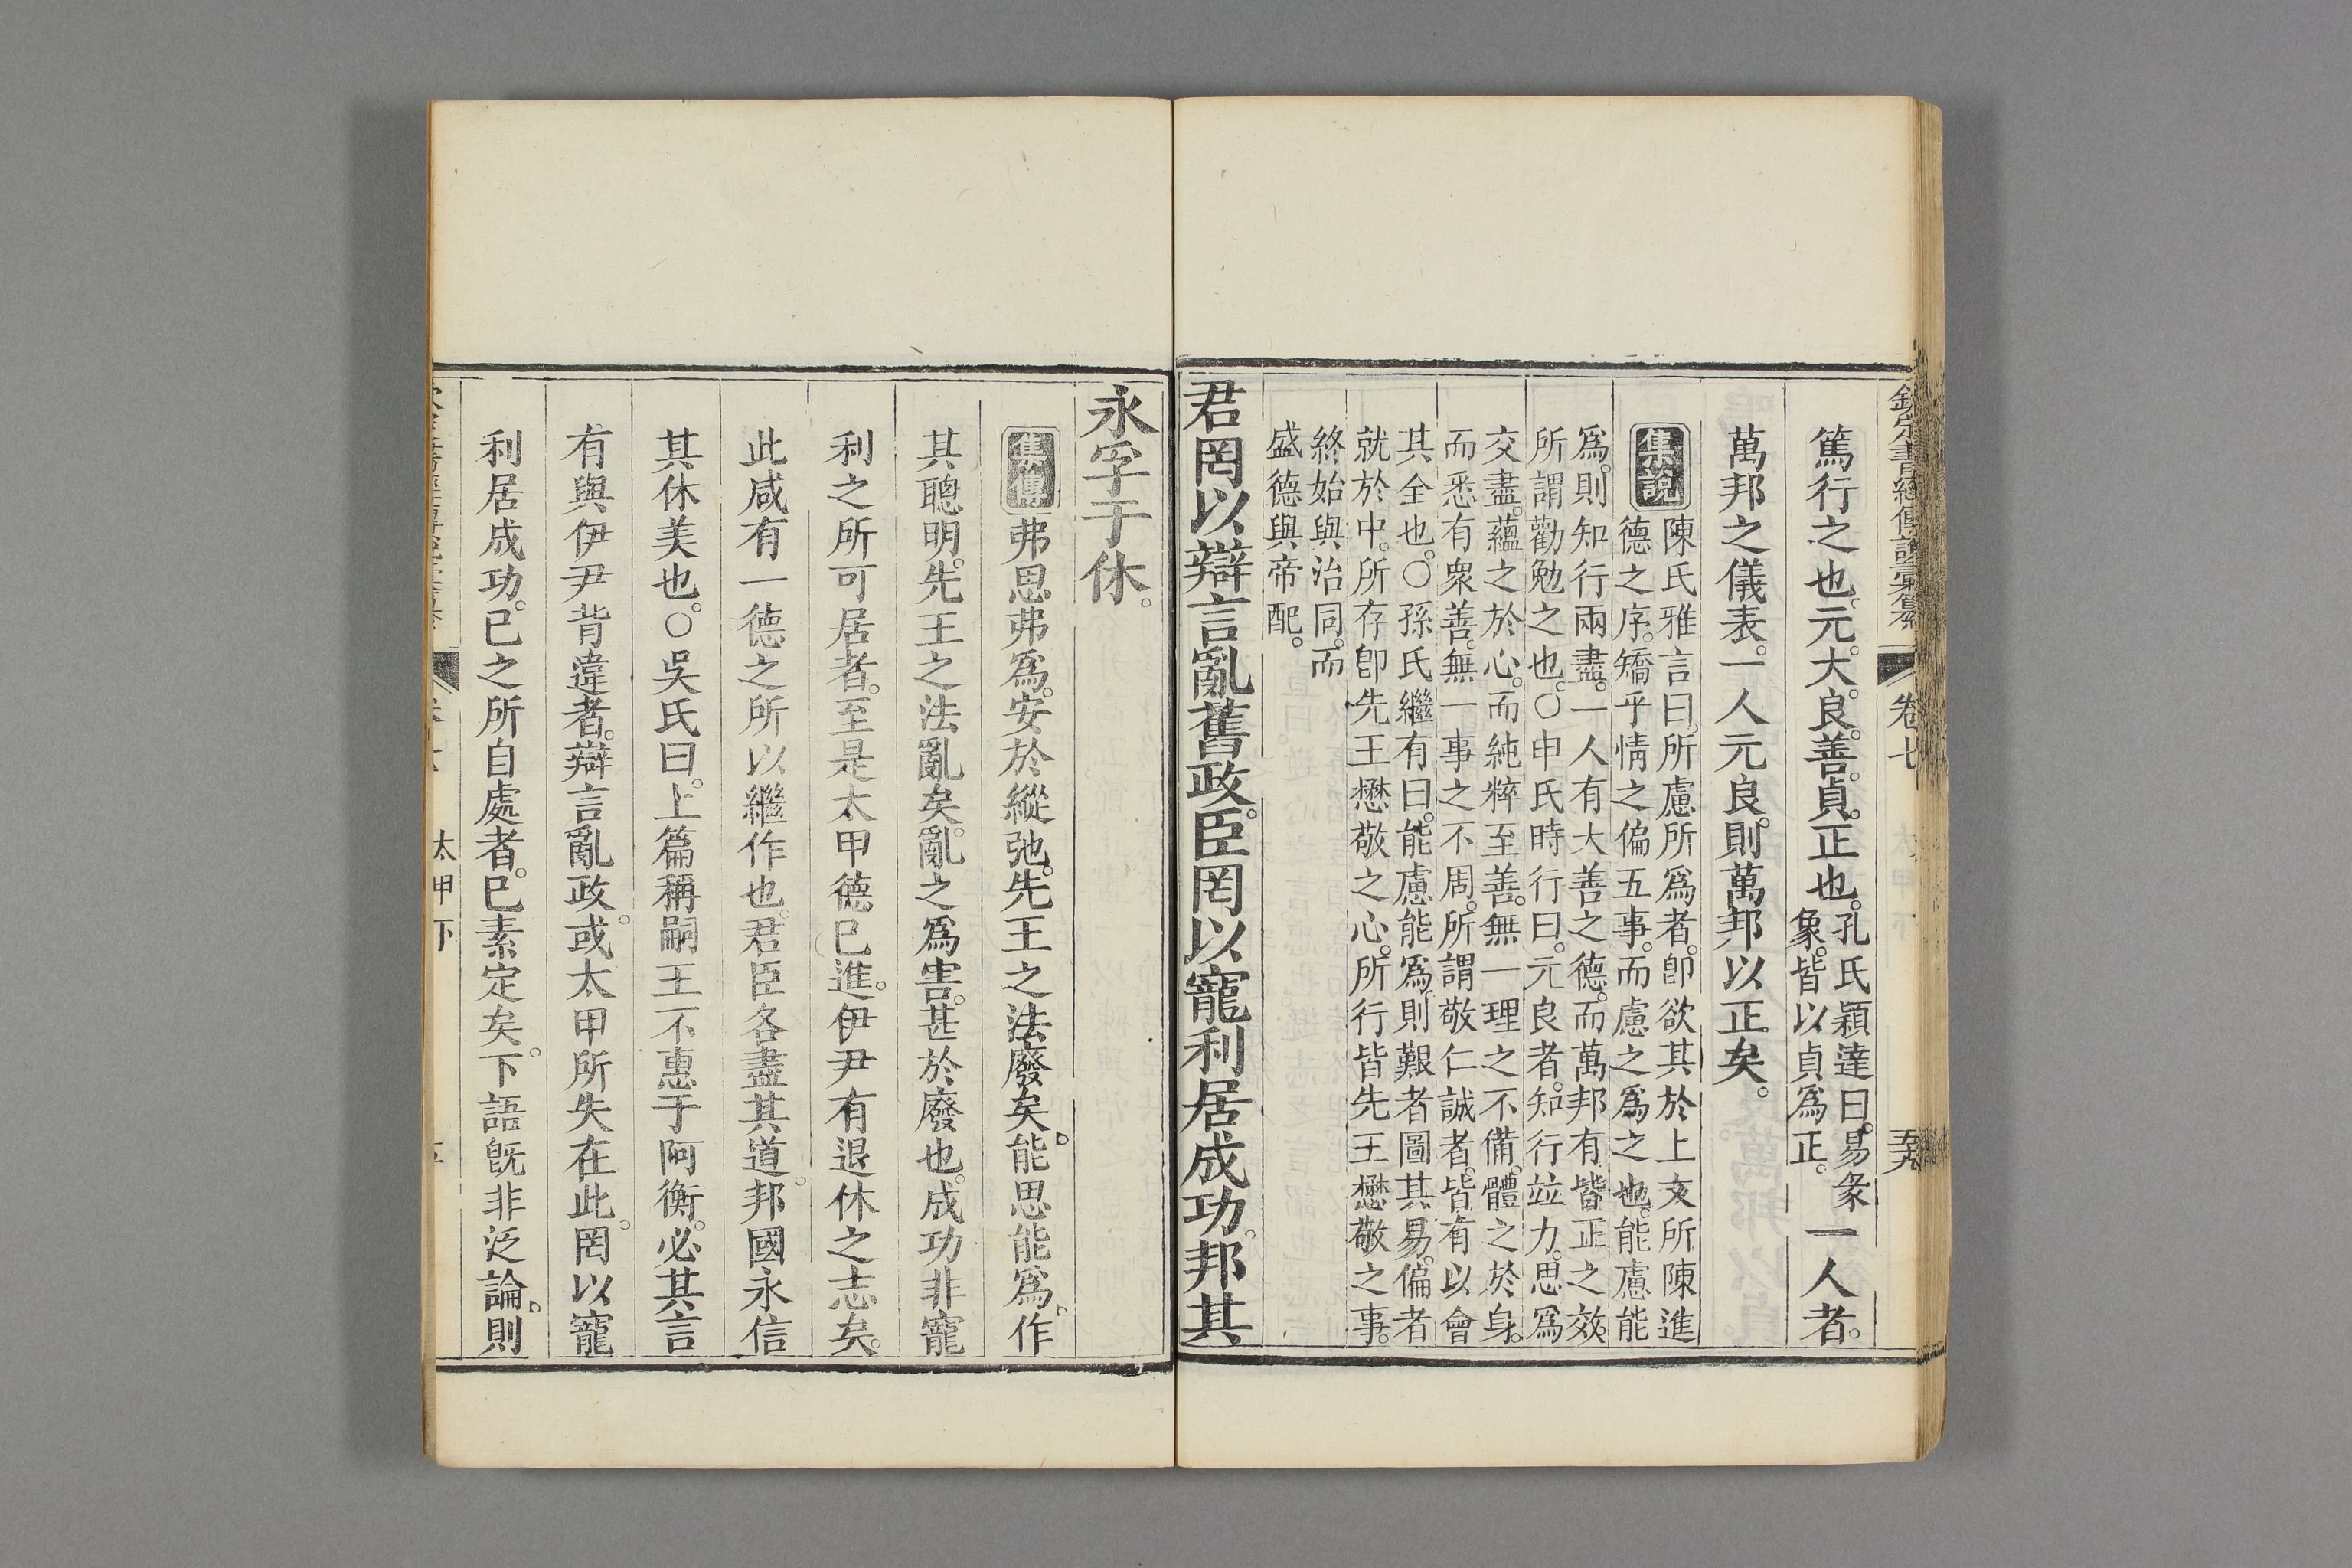 欽定書經傳說彙纂 卷七 太甲下
篤行之也。元。大。良。善。貞。正也。孔氏穎達曰。易彖
象。皆以貞爲正。一人者。
萬邦之儀表。一人元良。則萬邦以正矣。
集說 陳氏雅言曰。所慮所爲者。卽欲其於上文所陳進
德之序。矯乎情之偏五事。而慮之爲之也。能慮能
爲。則知行兩盡。一人有大善之德。而萬邦有皆正之效。
所謂勸勉之也。○申氏時行曰。元良者。知行竝力。思爲
交盡。蘊之於心。而純粹至善。無一理之不備。體之於身。
而悉有衆善。無一事之不周。所謂敬仁誠者。皆有以會
其全也。○孫氏繼有曰。能慮能爲。則艱者圖其易。偏者
就於中。所存卽先王懋敬之心。所行皆先王懋敬之事。
終始與治同。而
盛德與帝配。
君罔以辯言亂舊政。臣罔以寵利居成功。邦其
永孚于休。
集傳 弗思弗爲。安於縱弛。先王之法廢矣。能思能爲。作
其聰明。先王之法亂矣。亂之爲害。甚於廢也。成功非寵
利之所可居者。至是太甲德已進。伊尹有退休之志矣。
此咸有一德之所以繼作也。君臣各盡其道。邦國永信
其休美也。○吳氏曰。上篇稱嗣王不惠于阿衡。必其言
有與伊尹背違者。辯言亂政。或太甲所失在此。罔以寵
利居成功。己之所自處者。已素定矣。下語旣非泛論。則
太甲下